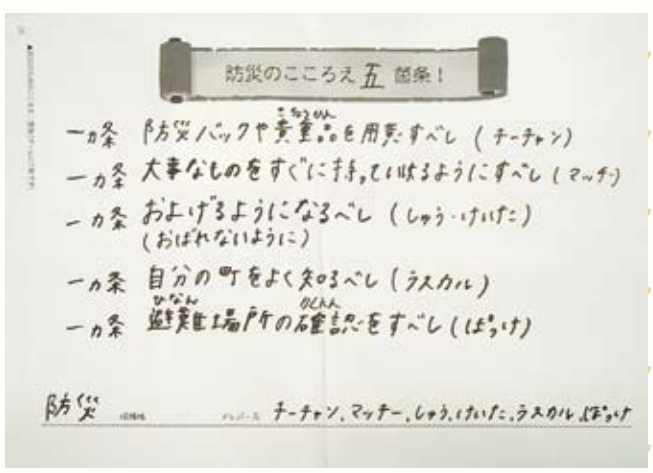 防災のこころえ 五 箇条!
一カ条 防災バックや貴重品を用意すべし(チーチャン)
一カ条 大事なものをすぐに持っていけるようにすべし(マッチー)
一カ条 およげるようになるべし(しゅう・けいた)
(おぼれないように)
一カ条 自分の町をよく知るべし(ラスカル)
ひなん かくにん
一カ条 避難場所の確認をすべし(ぽっけ)
防災
チーチャン、マッチー、しゅう、けいた、ラスカル、ぽっけ